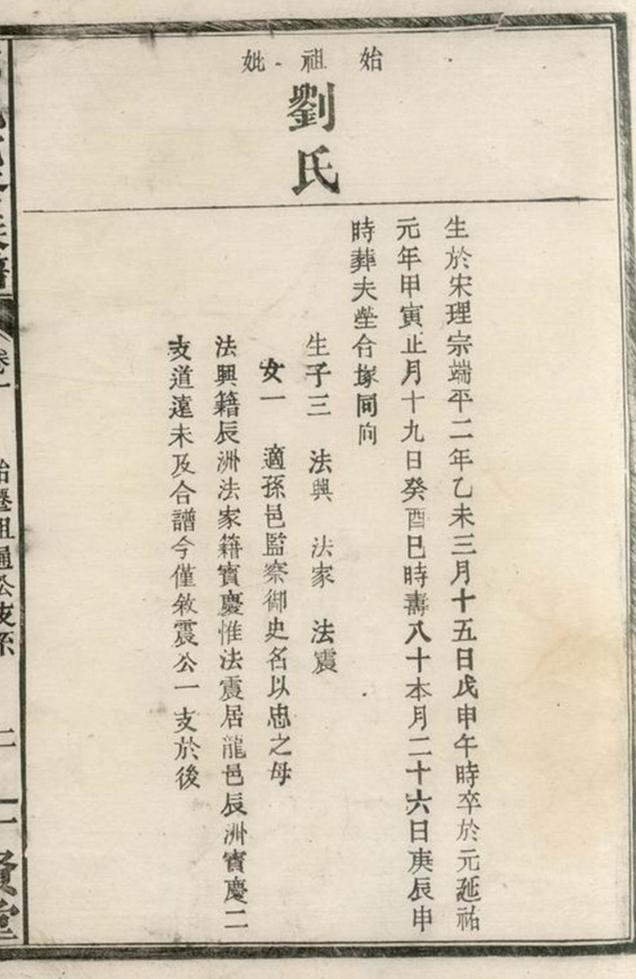 始祖妣
劉氏
生於宋理宗端平二年乙未三月十五日戊申午時卒於元延祐
元年甲寅止月十九日癸酉巳時壽八十本月二十六日庚辰申
時葬夫塋合塚同向
生子三 法興 法家 法震
女一 適孫邑監察御史名以忠之母
法興籍辰洲法家籍寶慶惟法震居龍邑辰洲寶慶二
支道遠未及合譜今僅敘震公一支於後
卷一
始遷祖通公支系
二
賢堂